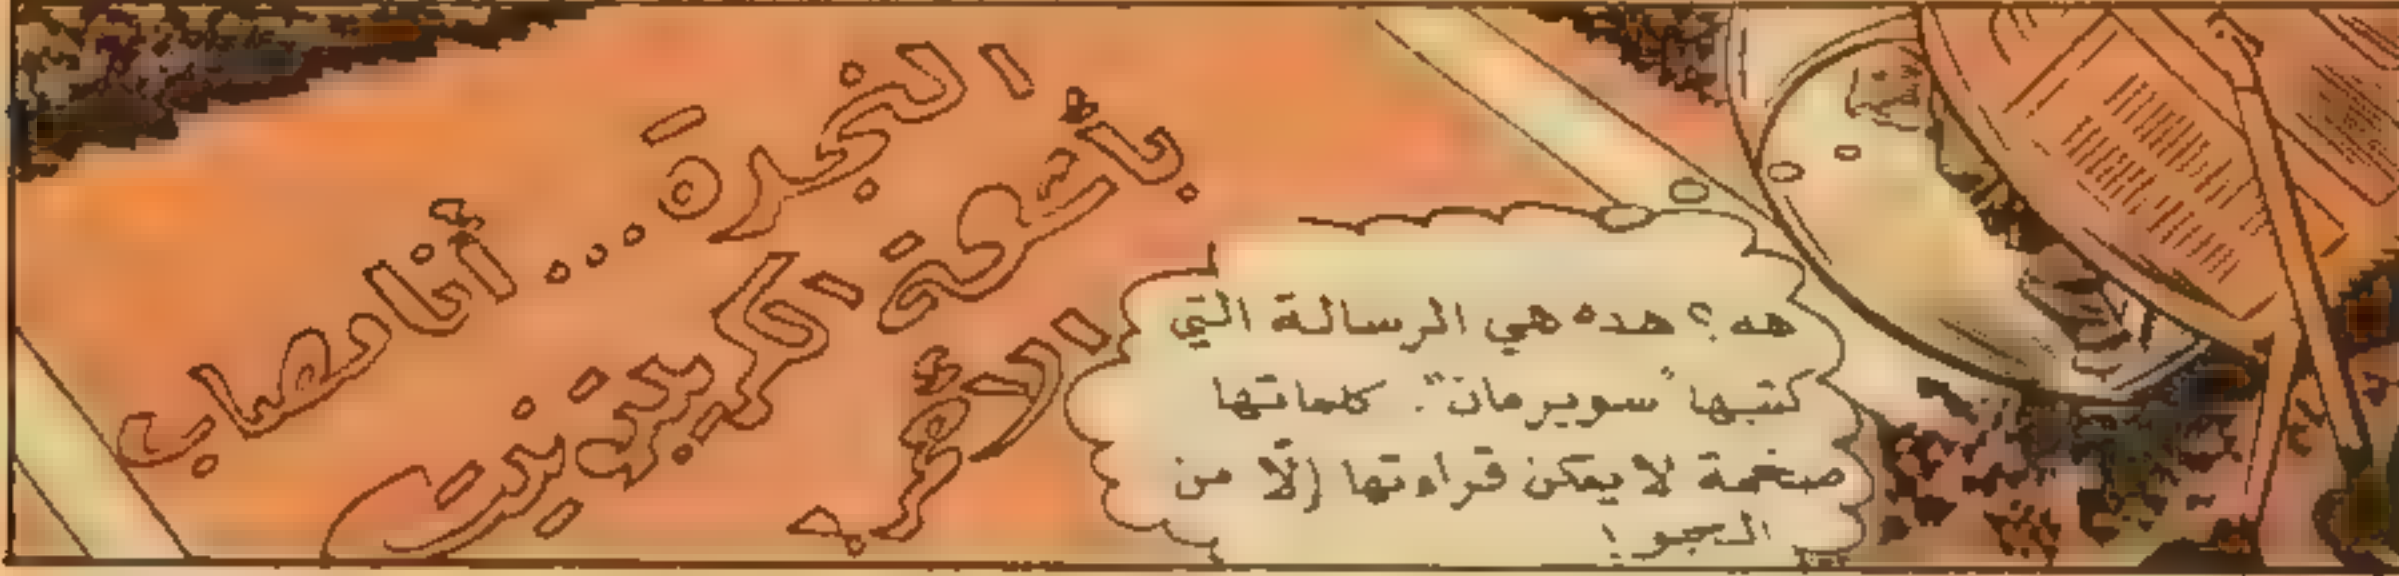 النجدة... أنا مصاب
بأشعة الكريبتونيت
هه؟ هده هي الرسالة التي
كتبها "سوبرمان". كلماتها
ضخمة لا يمكن قراءتها إلّا من
الجو!